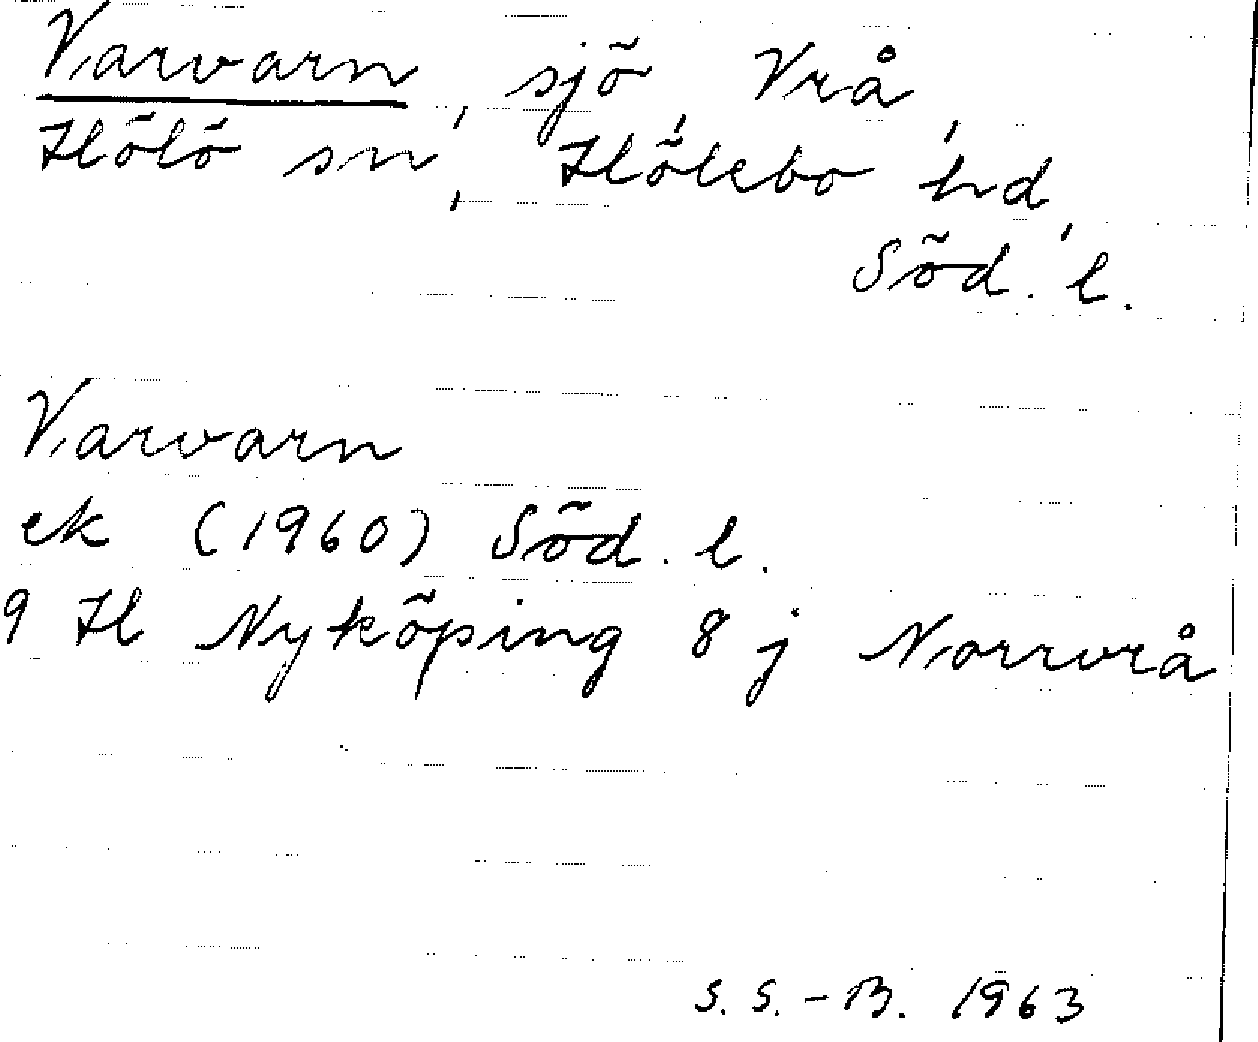 Varvarn, sjö, Vrå,
Hölö sn, Hölebo hd,
Söd. l.
Varvarn
ek (1960) Söd. l.
9 H Nyköping 8 j Norrvrå
S. S.-B. 1963